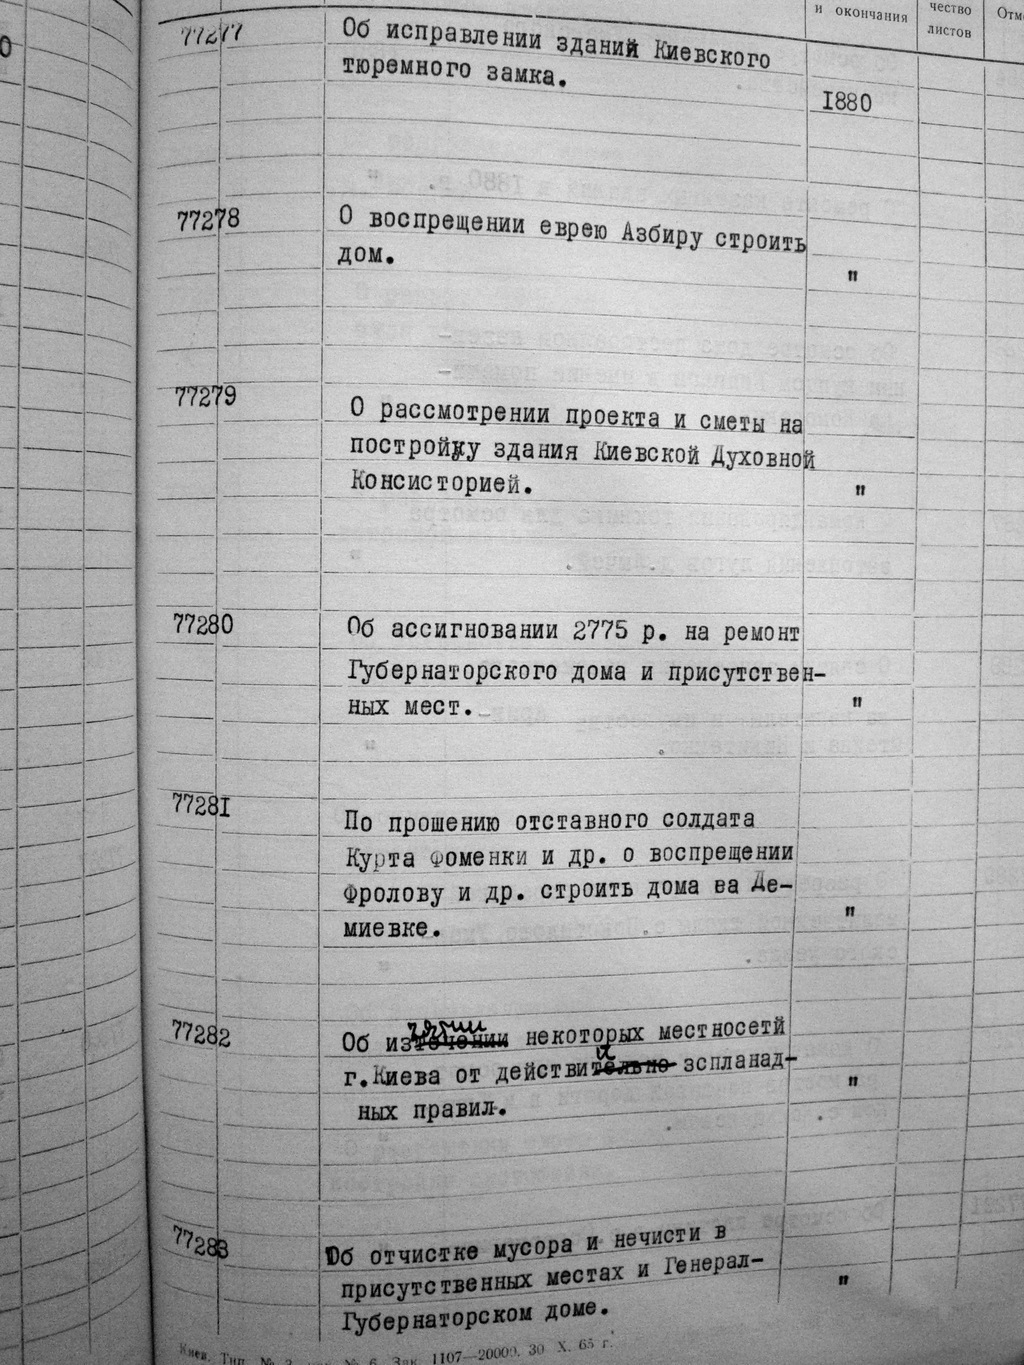 и окончания
чество
листов
Отм
77277
Об исправлении зданий Киевского
тюремного замка.
1880
77278
О воспрещении еврею Азбиру строить
дом.
"
77279
О рассмотрении проекта и сметы на
постройку здания Киевской Духовной
Консисторией.
"
77280
Об ассигновании 2775 р. на ремонт
Губернаторского дома и присутствен-
ных мест.
"
77281
По прошению отставного солдата
Курта Фоменки и др. о воспрещении
Фролову и др. строить дома на Де-
миевке.
"
77282
Об изъятии некоторых местносетй
г.Киева от действия эспланад-
ных правил.
"
77283
Об отчистке мусора и нечисти в
присутственных местах и Генерал-
Губернаторском доме.
"
Киев. Тип. № 6. Зак. 1107—20000. 30 X. 65 г.